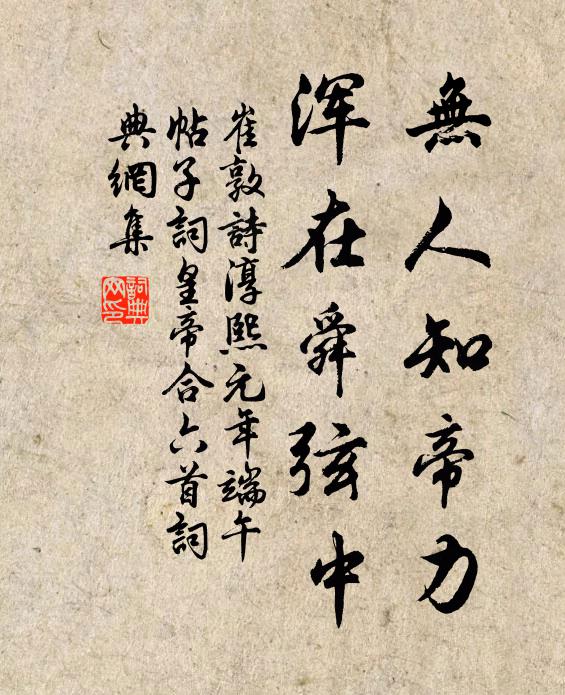 無人知帝力
渾在舜弦中
崔敦詩淳熙元年端午
帖子詞皇帝合六首詞
典網集
詞典
网印